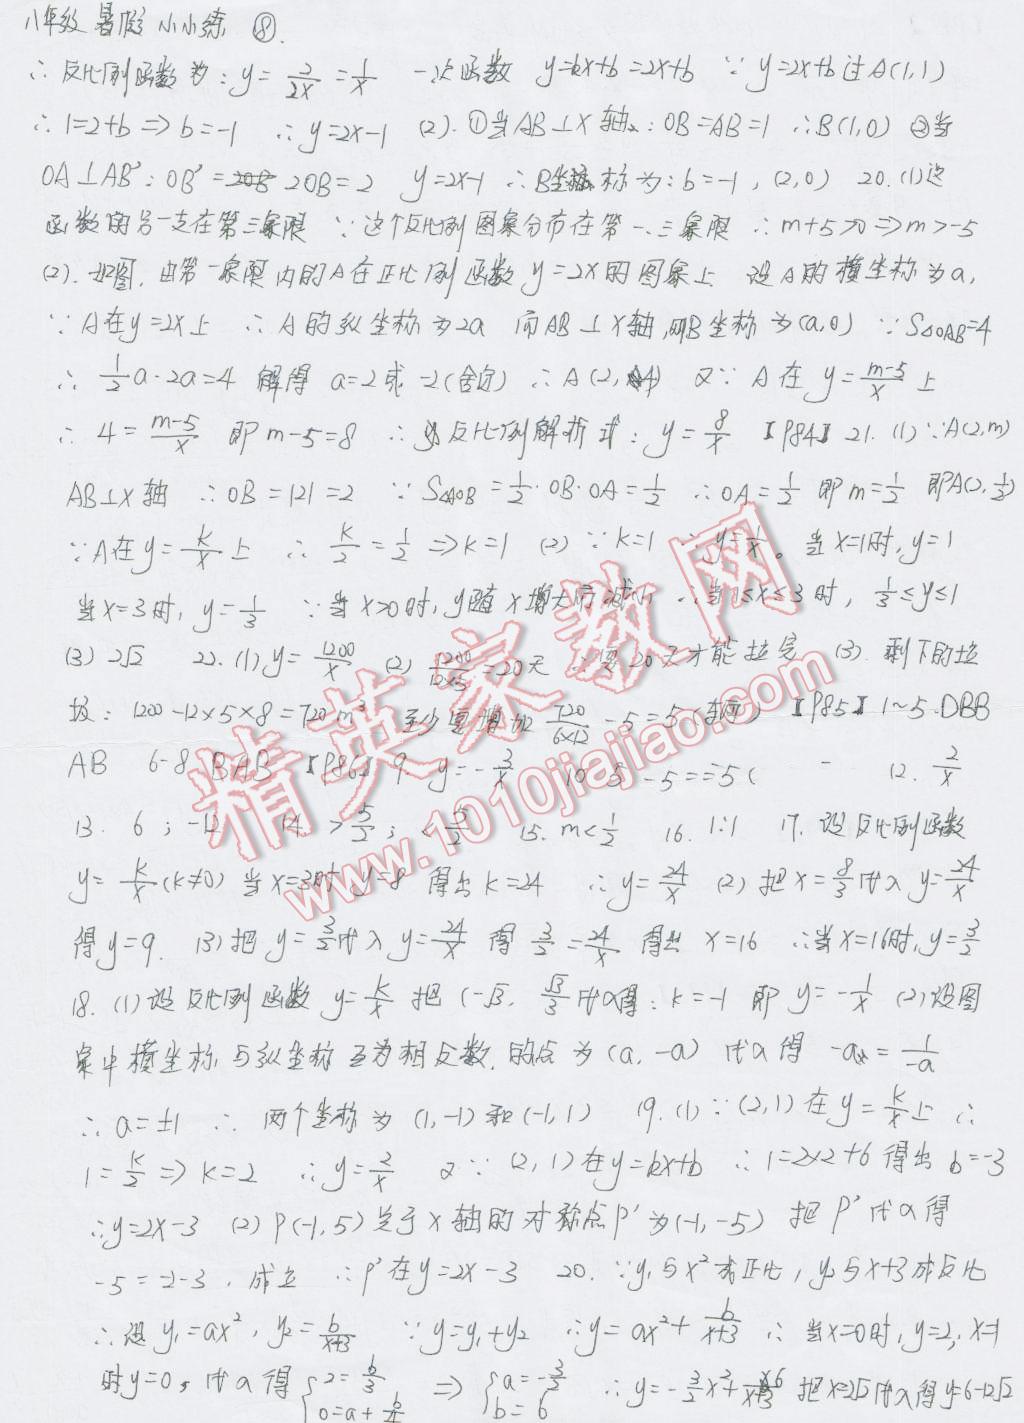 八年级 暑假 小小练 ⑧.
∴ 反比列函数为: y= 2/2x = 1/x 一次函数 y=kx+b=2x+b ∵ y=2x+b过A(1,1)
∴ 1=2+b ⇒ b=-1 ∴ y=2x-1 (2). ①当AB⊥x轴: OB=AB=1 ∴B(1,0) ②当
OA⊥AB': OB'= 2OB=2 y=2x-1 ∴B坐标为: b=-1, (2,0) 20. (1)这
函数的另一支在第三象限 ∵ 这个反比列图象分布在第一、三象限 ∴ m+5>0 ⇒ m>-5
(2). 如图, 由第一象限内的A在正比例函数 y=2x的图象上 设A的横坐标为a,
∵ A在y=2x上 ∴ A的纵坐标为2a 而AB⊥x轴,则B坐标为(a,0) ∵ S△OAB=4
∴ 1/2 a·2a=4 解得 a=2或-2(舍) ∴ A(2,4) 又∵ A在 y= m-5/x 上
∴ 4= m-5/x 即 m-5=8 ∴ 反比列解析式: y= 8/x 【P84】 21. (1)∵A(2,m)
AB⊥x轴 ∴OB=|2|=2 ∵ S△AOB = 1/2·OB·OA= 1/2 ∴OA= 1/2 即m= 1/2 即A(2, 1/2)
∵A在y= k/x 上 ∴ k/2 = 1/2 ⇒ k=1 (2) ∵ k=1 ∴ y= 1/x。 当x=1时, y=1
当x=3时, y= 1/3 ∵ 当x>0时, y随x增大而减小 ∴当1≤x≤3时, 1/3≤y≤1
(3) 2√2 22. (1) y= 1200/x (2) 1200/12×5 =20天 ∴要20天才能拉完 (3). 剩下的垃
圾: 1200-12×5×8=720m³ 至少要增加 720/6×12 -5=5(辆) 【P85】 1~5. DBB
AB 6-8 BAB 【P86】 9. y=- 3/x 10. 12. 2/x
13. 6; -12 14. > 5/2; < 5/2 15. m< 1/2 16. 1:1 17. 设反比列函数
y= k/x (k≠0) 当x=3时 y=8 得出k=24 ∴ y= 24/x (2) 把x= 8/3 代入 y= 24/x
得y=9. (3)把 y= 3/2 代入 y= 24/x 得 3/2 = 24/x 得出 x=16 ∴当x=16时, y= 3/2
18. (1)设反比列函数 y= k/x 把 (-√3, √3/3 代入得: k=-1 即 y=- 1/x (2)设图
象中横坐标与纵坐标互为相反数,的点为(a,-a) 代入得 -a = 1/-a
∴ a=±1 ∴ 两个坐标为 (1,-1)和(-1,1) 19. (1) ∵ (2,1)在y= k/x 上 ∴
1= k/2 ⇒ k=2 ∴ y= 2/x 又∵ (2,1)在y=kx+b ∴ 1=2×2+b得出 b=-3
∴y=2x-3 (2) P(-1,5)关于x轴的对称点P'为(-1,-5) 把P'代入得
-5=-2-3, 成立 ∴P'在y=2x-3 20. ∵y₁与x²成正比, y₂与x+3成反比
∴设y₁=ax², y₂= b/x+3 ∵ y=y₁+y₂ ∴y= ax²+ b/x+3 ∴ 当x=0时, y=2, x=1
时y=0, 代入得 {2= b/3 0=a+ b/4 ⇒ {a=- 3/2 b=6 ∴ y=- 3/2 x²+ 6/x+3 把x=2√2代入得y=6-12√2
精英家教网
www.1010jiajiao.com